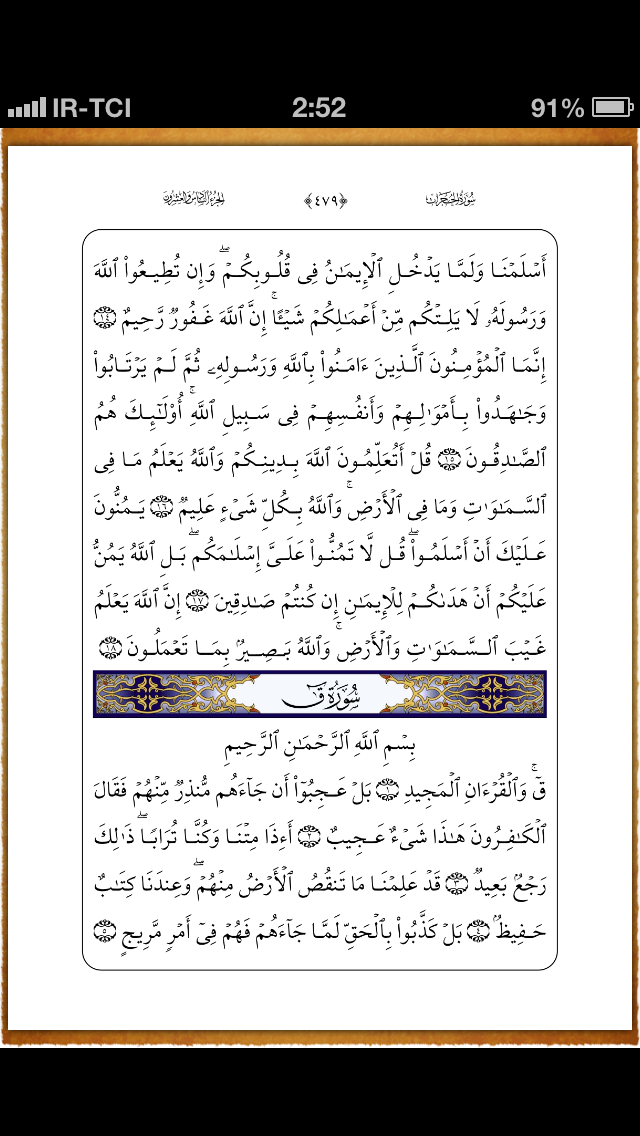 IR-TCI 2:52 91%
سُورَةُ الحُجُرَاتِ ﴿٤٧٩﴾ الجُزءُ السَّادِسُ وَالعِشرُونَ
أَسۡلَمۡنَا وَلَمَّا يَدۡخُلِ ٱلۡإِيمَٰنُ فِى قُلُوبِكُمۡۖ وَإِن تُطِيعُوا۟ ٱللَّهَ
وَرَسُولَهُۥ لَا يَلِتۡكُم مِّنۡ أَعۡمَٰلِكُمۡ شَيۡـًٔاۚ إِنَّ ٱللَّهَ غَفُورٌ رَّحِيمٌ ١٤
إِنَّمَا ٱلۡمُؤۡمِنُونَ ٱلَّذِينَ ءَامَنُوا۟ بِٱللَّهِ وَرَسُولِهِۦ ثُمَّ لَمۡ يَرۡتَابُوا۟
وَجَٰهَدُوا۟ بِأَمۡوَٰلِهِمۡ وَأَنفُسِهِمۡ فِى سَبِيلِ ٱللَّهِۚ أُو۟لَٰٓئِكَ هُمُ
ٱلصَّٰدِقُونَ ١٥ قُلۡ أَتُعَلِّمُونَ ٱللَّهَ بِدِينِكُمۡ وَٱللَّهُ يَعۡلَمُ مَا فِى
ٱلسَّمَٰوَٰتِ وَمَا فِى ٱلۡأَرۡضِۚ وَٱللَّهُ بِكُلِّ شَىۡءٍ عَلِيمٌ ١٦ يَمُنُّونَ
عَلَيۡكَ أَنۡ أَسۡلَمُوا۟ۖ قُل لَّا تَمُنُّوا۟ عَلَىَّ إِسۡلَٰمَكُمۖ بَلِ ٱللَّهُ يَمُنُّ
عَلَيۡكُمۡ أَنۡ هَدَىٰكُمۡ لِلۡإِيمَٰنِ إِن كُنتُمۡ صَٰدِقِينَ ١٧ إِنَّ ٱللَّهَ يَعۡلَمُ
غَيۡبَ ٱلسَّمَٰوَٰتِ وَٱلۡأَرۡضِۚ وَٱللَّهُ بَصِيرٌۢ بِمَا تَعۡمَلُونَ ١٨
سُورَةُ قٓ
بِسۡمِ ٱللَّهِ ٱلرَّحۡمَٰنِ ٱلرَّحِيمِ
قٓۚ وَٱلۡقُرۡءَانِ ٱلۡمَجِيدِ ١ بَلۡ عَجِبُوٓا۟ أَن جَآءَهُم مُّنذِرٌ مِّنۡهُمۡ فَقَالَ
ٱلۡكَٰفِرُونَ هَٰذَا شَىۡءٌ عَجِيبٌ ٢ أَءِذَا مِتۡنَا وَكُنَّا تُرَابًاۖ ذَٰلِكَ
رَجۡعٌۢ بَعِيدٌ ٣ قَدۡ عَلِمۡنَا مَا تَنقُصُ ٱلۡأَرۡضُ مِنۡهُمۡۖ وَعِندَنَا كِتَٰبٌ
حَفِيظٌۢ ٤ بَلۡ كَذَّبُوا۟ بِٱلۡحَقِّ لَمَّا جَآءَهُمۡ فَهُمۡ فِىٓ أَمۡرٍ مَّرِيجٍ ٥